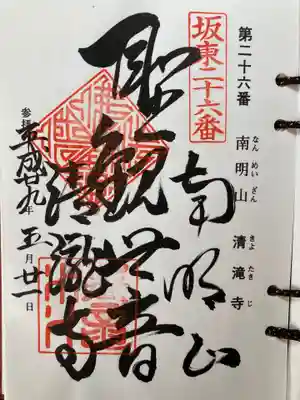 第二十六番 南明山 清滝寺
なんめいざん きよたきじ
坂東二十六番
南明山
聖観世音
清瀧寺
参拝 平成廿九年五月廿一日